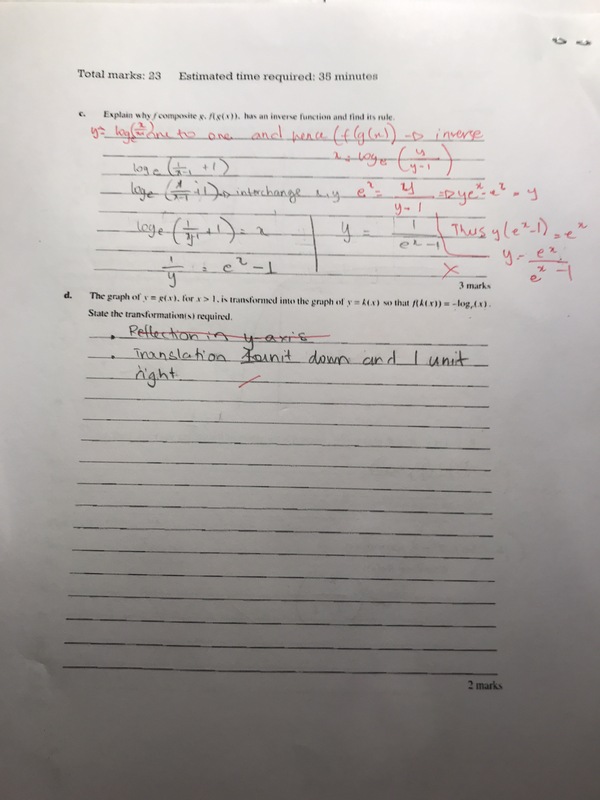 Total marks: 23 Estimated time required: 35 minutes
c. Explain why f composite g, f(g(x)), has an inverse function and find its rule.
y= logₑ(x/x-1) one to one and hence (f(g(x)) → inverse
x = logₑ (y/y-1)
logₑ(1/x-1 +1)
logₑ(1/x-1 +1) → interchange x, y eˣ = y/y-1 ⇒ yeˣ - eˣ = y
logₑ(1/y-1 +1) = x y = 1/eˣ-1 Thus y(eˣ-1) = eˣ
1/y = eˣ-1 × y = eˣ/eˣ-1
3 marks
d. The graph of y = g(x), for x > 1, is transformed into the graph of y = k(x) so that f(k(x)) = -logₑ(x).
State the transformation(s) required.
• Reflection in y-axis
• Translation unit down and 1 unit
right.
2 marks